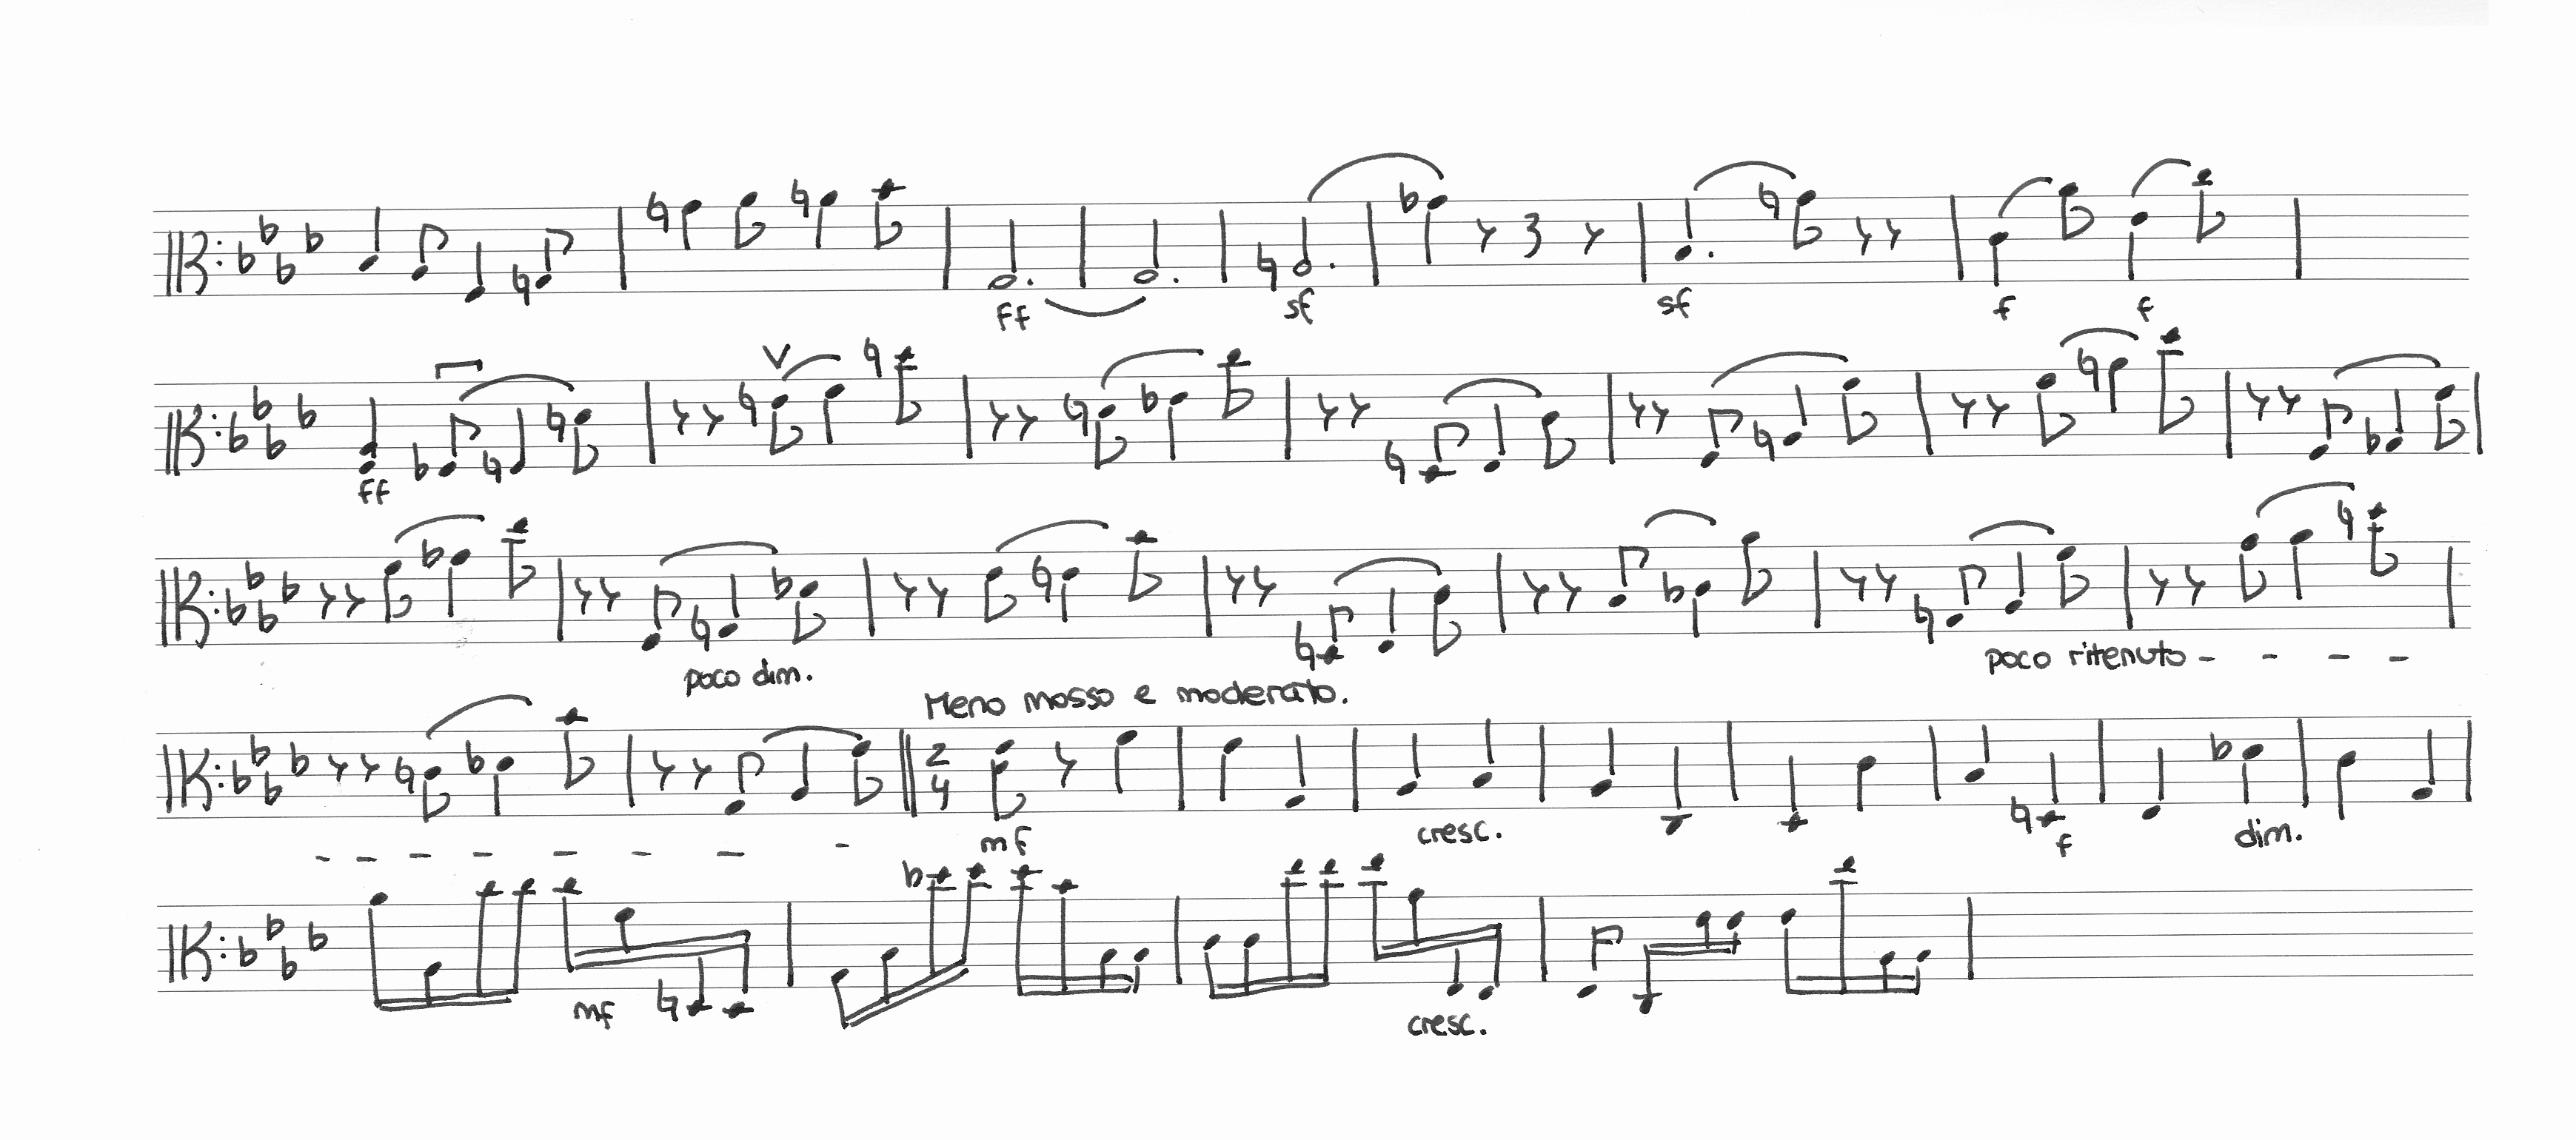 ff sf sf f f
ff
poco dim. poco ritenuto - - - -
Meno mosso e moderato.
2
4
- - - - - - - -
mf cresc. f dim.
mf cresc.